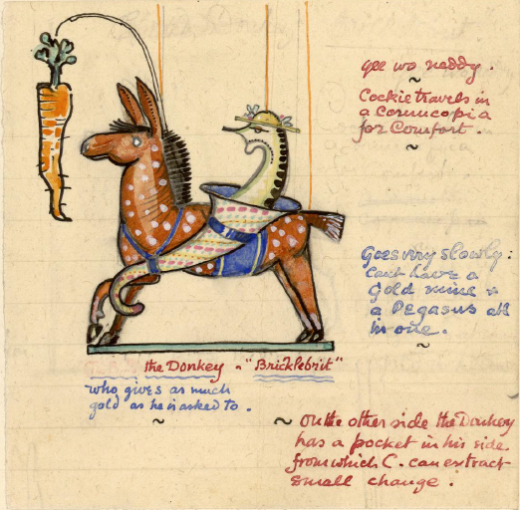 gee wo neddy.
~
Cockie travels in
a Cornucopia
for Comfort.
~
Goes very slowly:
can't have a
gold mine &
a PEGASUS all
in one.
~
the Donkey - "Bricklebrit"
who gives as much
gold as he is asked to.
~
~ on the other side the Donkey
has a pocket in his side
from which C. can extract
small change.